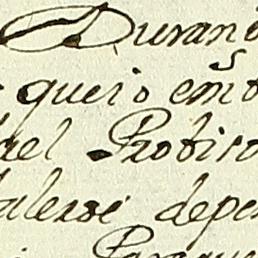 Duran
queio em̃t
del Probiso
alerse depe